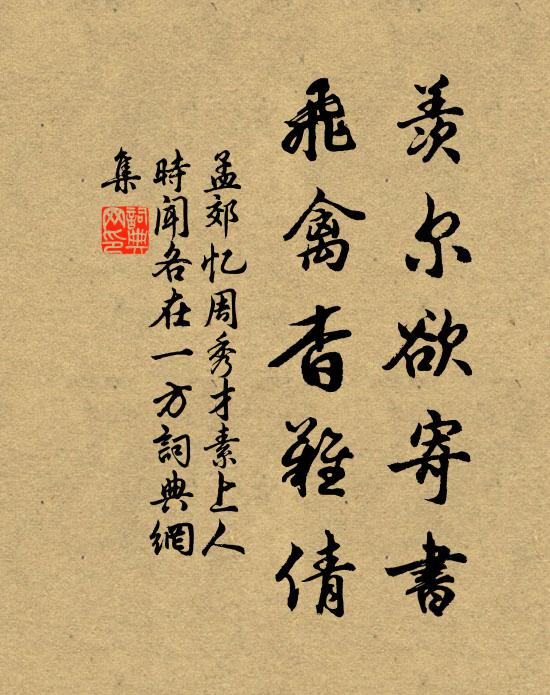 羨尔欲寄書
飛禽杳難倩
孟郊忆周秀才素上人
時闻各在一方詞典網
集
詞典
网印